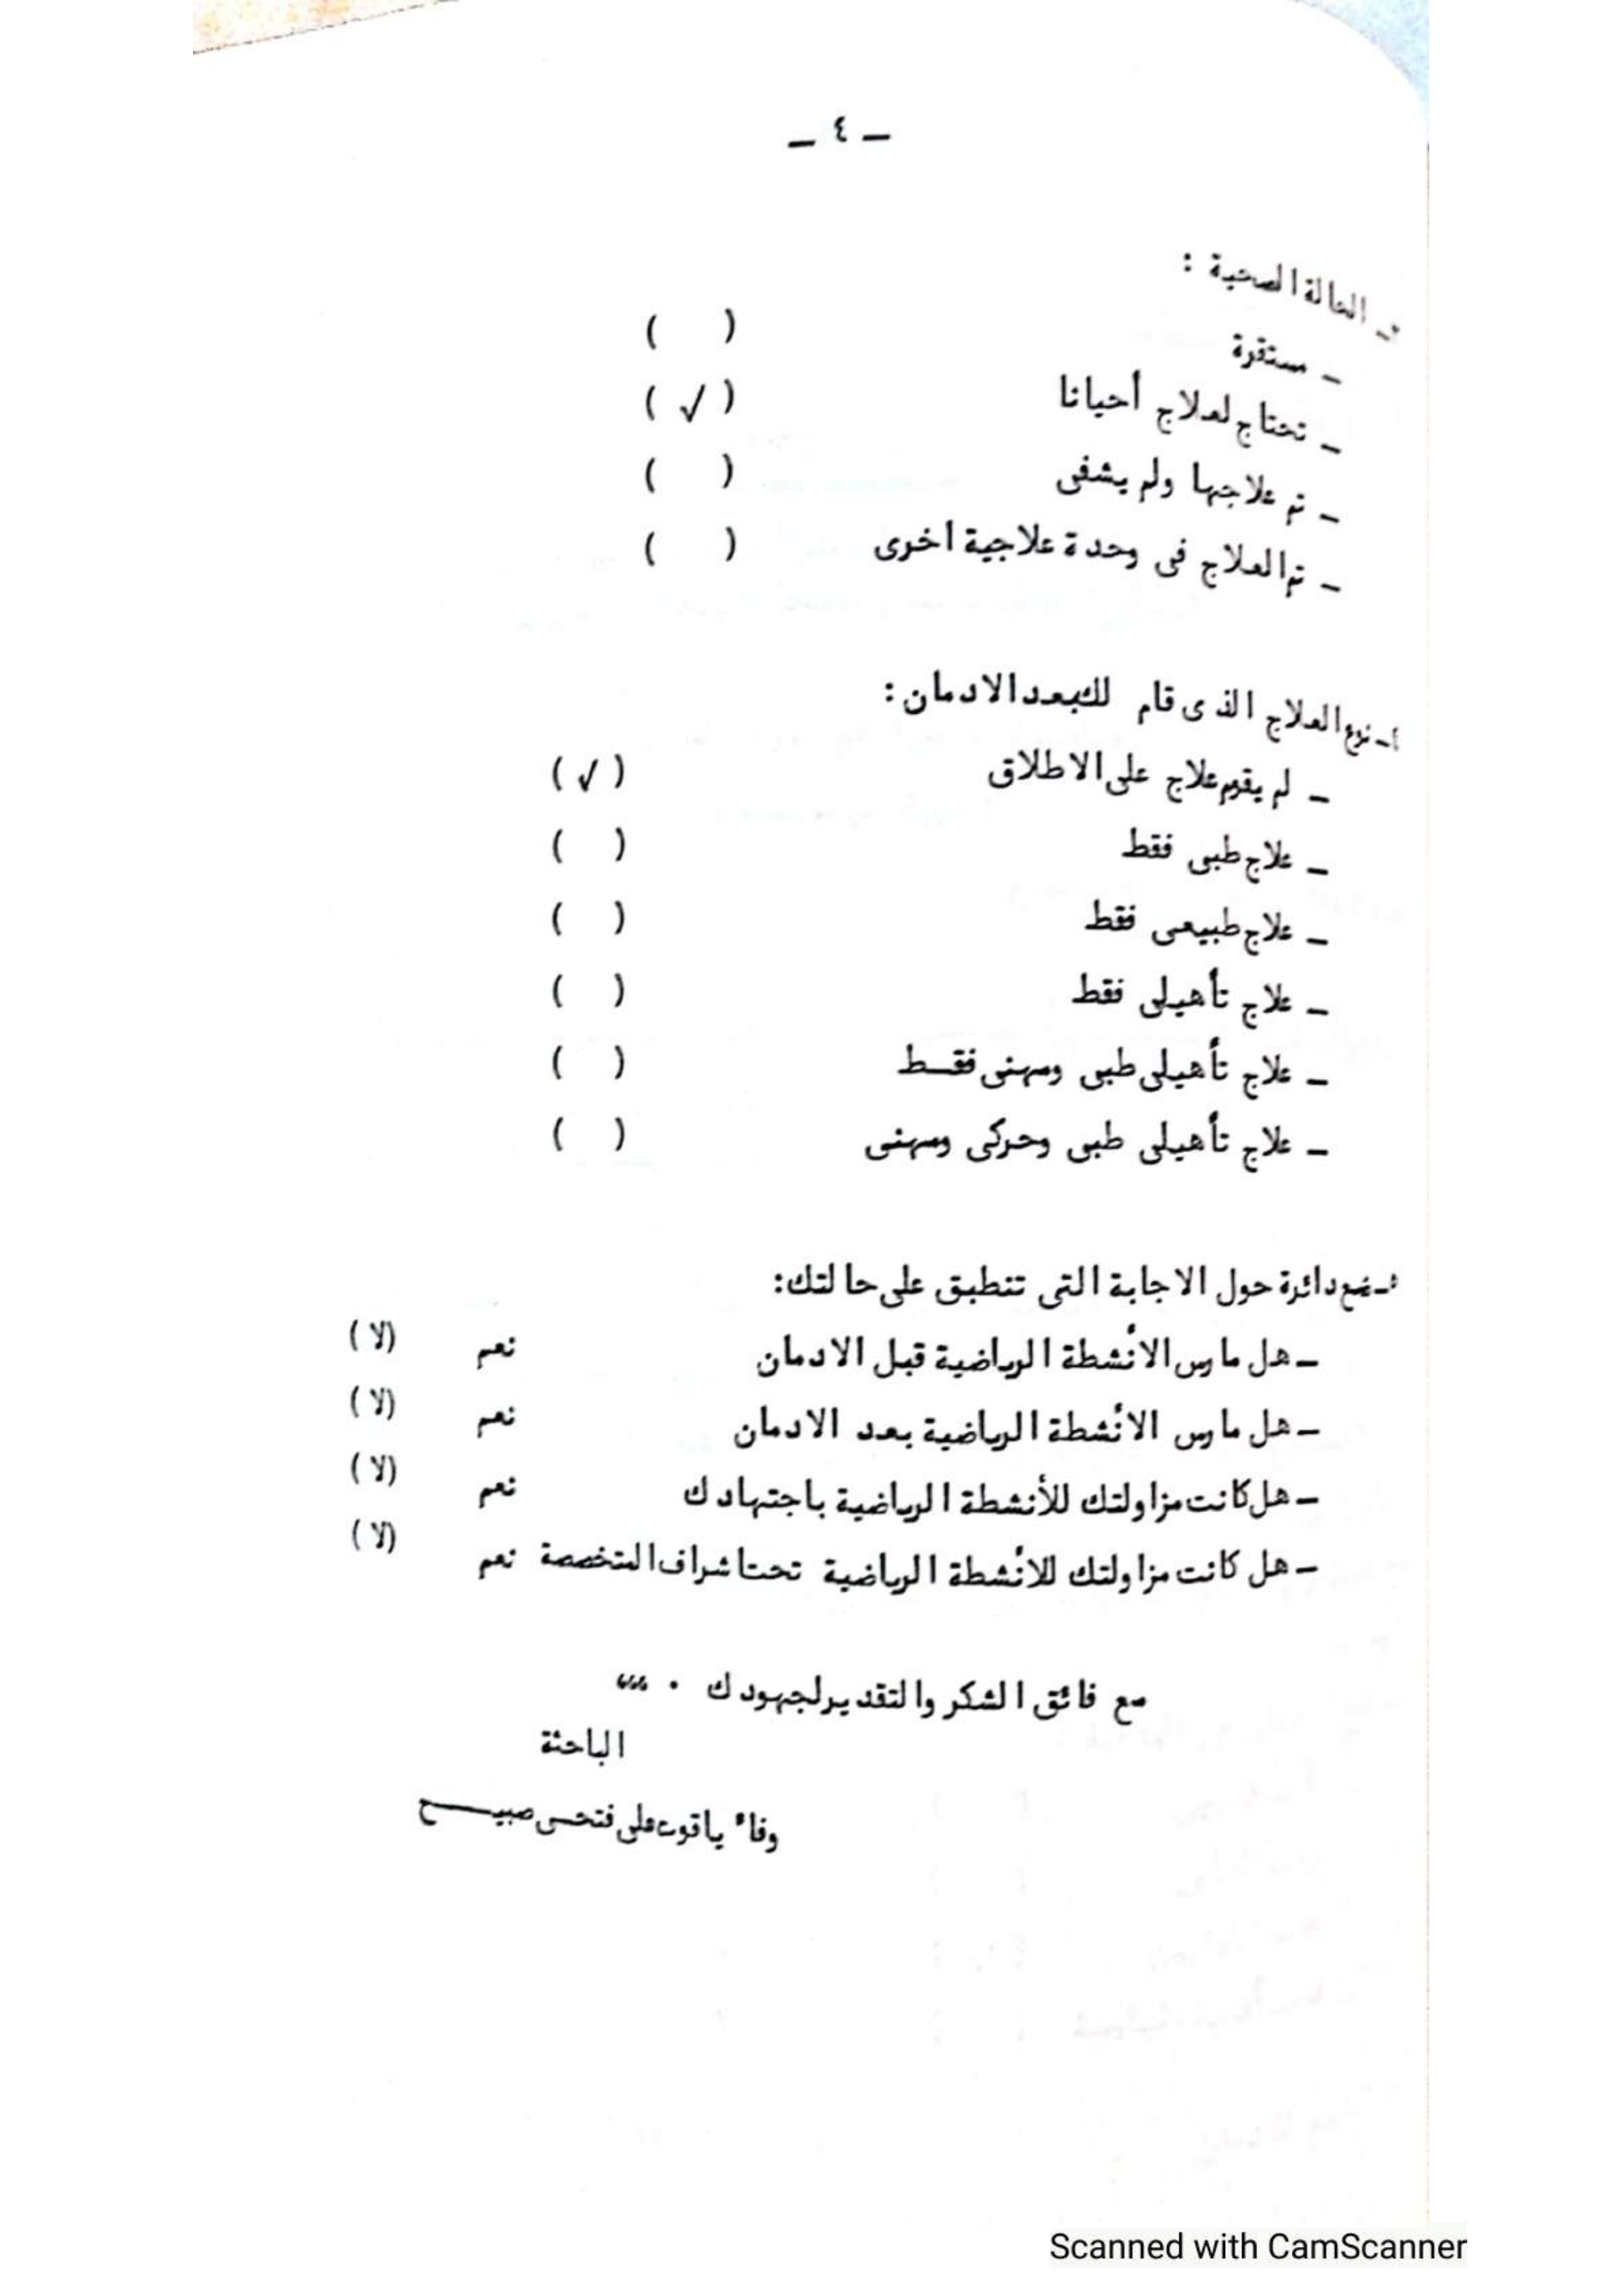 ـ ٤ ـ
ـ الحالة الصحية :
ـ مستقرة ( )
ـ تحتاج لعلاج أحيانا ( √ )
ـ تم علاجها ولم يشفى ( )
ـ تم العلاج فى وحدة علاجية اخرى ( )
ـ نوع العلاج الذى قام لك بعد الادمان :
ـ لم يقوم علاج على الاطلاق ( √ )
ـ علاج طبى فقط ( )
ـ علاج طبيعى فقط ( )
ـ علاج تأهيلى فقط ( )
ـ علاج تأهيلى طبى ومهنى فقـط ( )
ـ علاج تأهيلى طبى وحركى ومهنى ( )
ـ ضع دائرة حول الاجابة التى تنطبق على حالتك:
ـ هل مارس الأنشطة الرياضية قبل الادمان نعم (لا)
ـ هل مارس الأنشطة الرياضية بعد الادمان نعم (لا)
ـ هل كانت مزاولتك للأنشطة الرياضية باجتهادك نعم (لا)
ـ هل كانت مزاولتك للأنشطة الرياضية تحت اشراف المتخصصة نعم (لا)
مع فائق الشكر والتقدير لجهودك ٠ ،،،
الباحثة
وفاء ياقوت على فتحى صبيـــح
Scanned with CamScanner